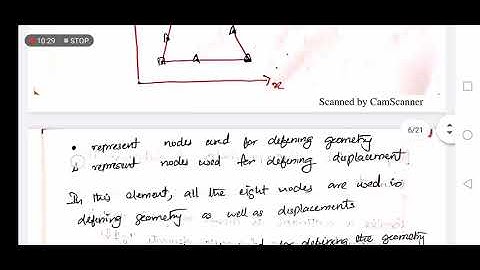 10:29 STOP
x
Scanned by CamScanner
6/21
• represent nodes used for defining geometry
△ represent nodes used for defining displacement
In this element, all the eight nodes are used in
defining geometry as well as displacements
used for defining the geometry